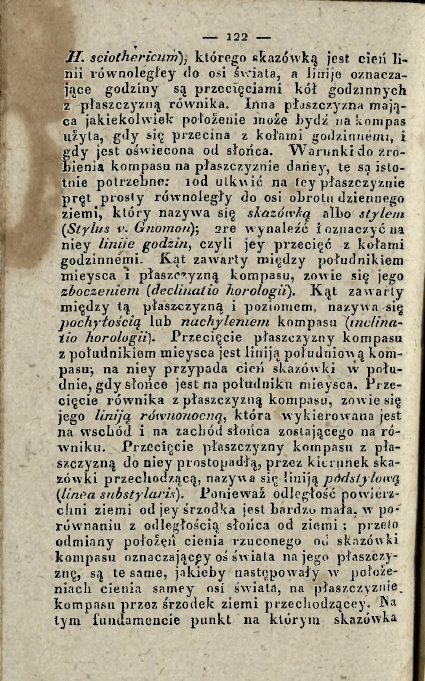 — 122 —
H. sciothericum); którego skazówką jest cień li-
nii równoległey do osi świata, a linije oznacza-
jące godziny są przecięciami kół godzinnych
z płaszczyzną równika. Inna płaszczyzna mają-
ca jakiekolwiek położenie może bydź na kompas
użyta, gdy się przecina z kołami godzinnemi, i
gdy jest oświecona od słońca. Warunki do zro-
bienia kompasu na płaszczyznie daney, te są isto-
tnie potrzebne: 1od utkwić na tey płaszczyznie
pręt prosty równoległy do osi obrotu dziennego
ziemi, który nazywa się skazówką albo stylem
(Stylus v. Gnomon); 2re wynaleźć i oznaczyć na
niey linije godzin, czyli jey przecięć z kołami
godzinnémi. Kąt zawarty między południkiem
mieysca i płaszczyzną kompasu, zowie się jego
zboczeniem (declinatio horologii). Kąt zawarty
między tą płaszczyzną i poziomem, nazywa się
pochyłością lub nachyleniem kompasu (inclina-
tio horologii). Przecięcie płaszczyzny kompasu
z południkiem mieysca jest liniją południową kom-
pasu; na niey przypada cień skazówki w połu-
dnie, gdy słońce jest na południku mieysca. Prze-
cięcie równika z płaszczyzną kompasu, zowie się
jego liniją równonocną, która wykierowana jest
na wschód i na zachód słońca zostającego na ró-
wniku. Przecięcie płaszczyzny kompasu z pła-
szczyzną do niey prostopadłą, przez kierunek ska-
zówki przechodzącą, nazywa się liniją podstylową
(linea substylaris). Ponieważ odległość powierz-
chni ziemi od jey śrzodka jest bardzo mała, w po-
równaniu z odległością słońca od ziemi; przeto
odmiany położeń cienia rzuconego od skazówki
kompasu oznaczającey oś świata na jego płaszczy-
znę, są te same, jakieby następowały w położe-
niach cienia samey osi świata, na płaszczyznie
kompasu przez śrzodek ziemi przechodzącey. Na
tym fundamencie punkt na którym skazówka